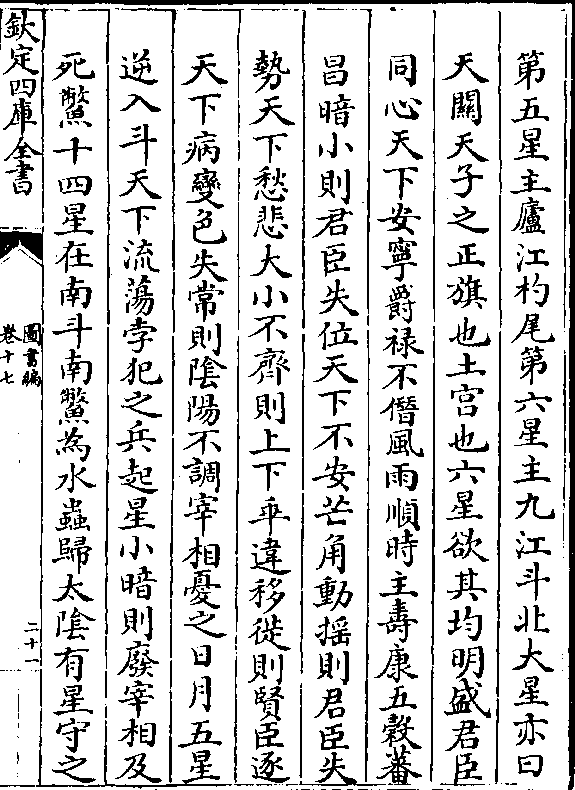 第五星主廬江杓尾第六星主九江斗北大星亦曰
天關天子之正旗也土宫也六星欲其均明盛君臣
同心天下安寧爵禄不僭風雨順時主壽康五穀蕃
昌暗小則君臣失位天下不安芒角動揺則君臣失
勢天下愁悲大小不齊則上下乖違移徙則賢臣逐
天下病變色失常則陰陽不調宰相憂之日月五星
逆入斗天下流蕩孛犯之兵起星小暗則廢宰相及
死鱉十四星在南斗南鱉為水蟲歸太陰有星守之
欽定四庫全書
圖書編
卷十七
二十一